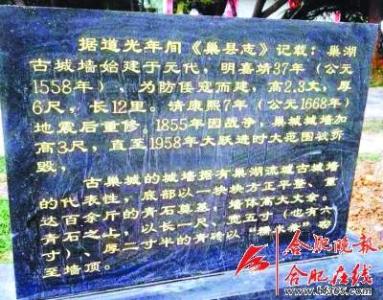 据道光年间《巢县志》记载：巢湖
古城墙始建于元代，明嘉靖37年（公元
1558年），为防倭寇而建，高2.3丈，厚
6尺，长12里。清康熙7年（公元1668年）
地震后重修。1855年因战争，巢城城墙加
高3尺，直至1958年大跃进时大范围被拆
毁，
古巢城的城墙据有巢湖流道古城墙
的代表性，底部以一块块方正平整、重
达百余斤的青石奠基，墙体高大大余。
青石之上，以长一尺、宽五寸（也有六
寸）、厚二寸半的青砖以“糯米
至墙顶。
合肥晚报
合肥在线
bf365.com